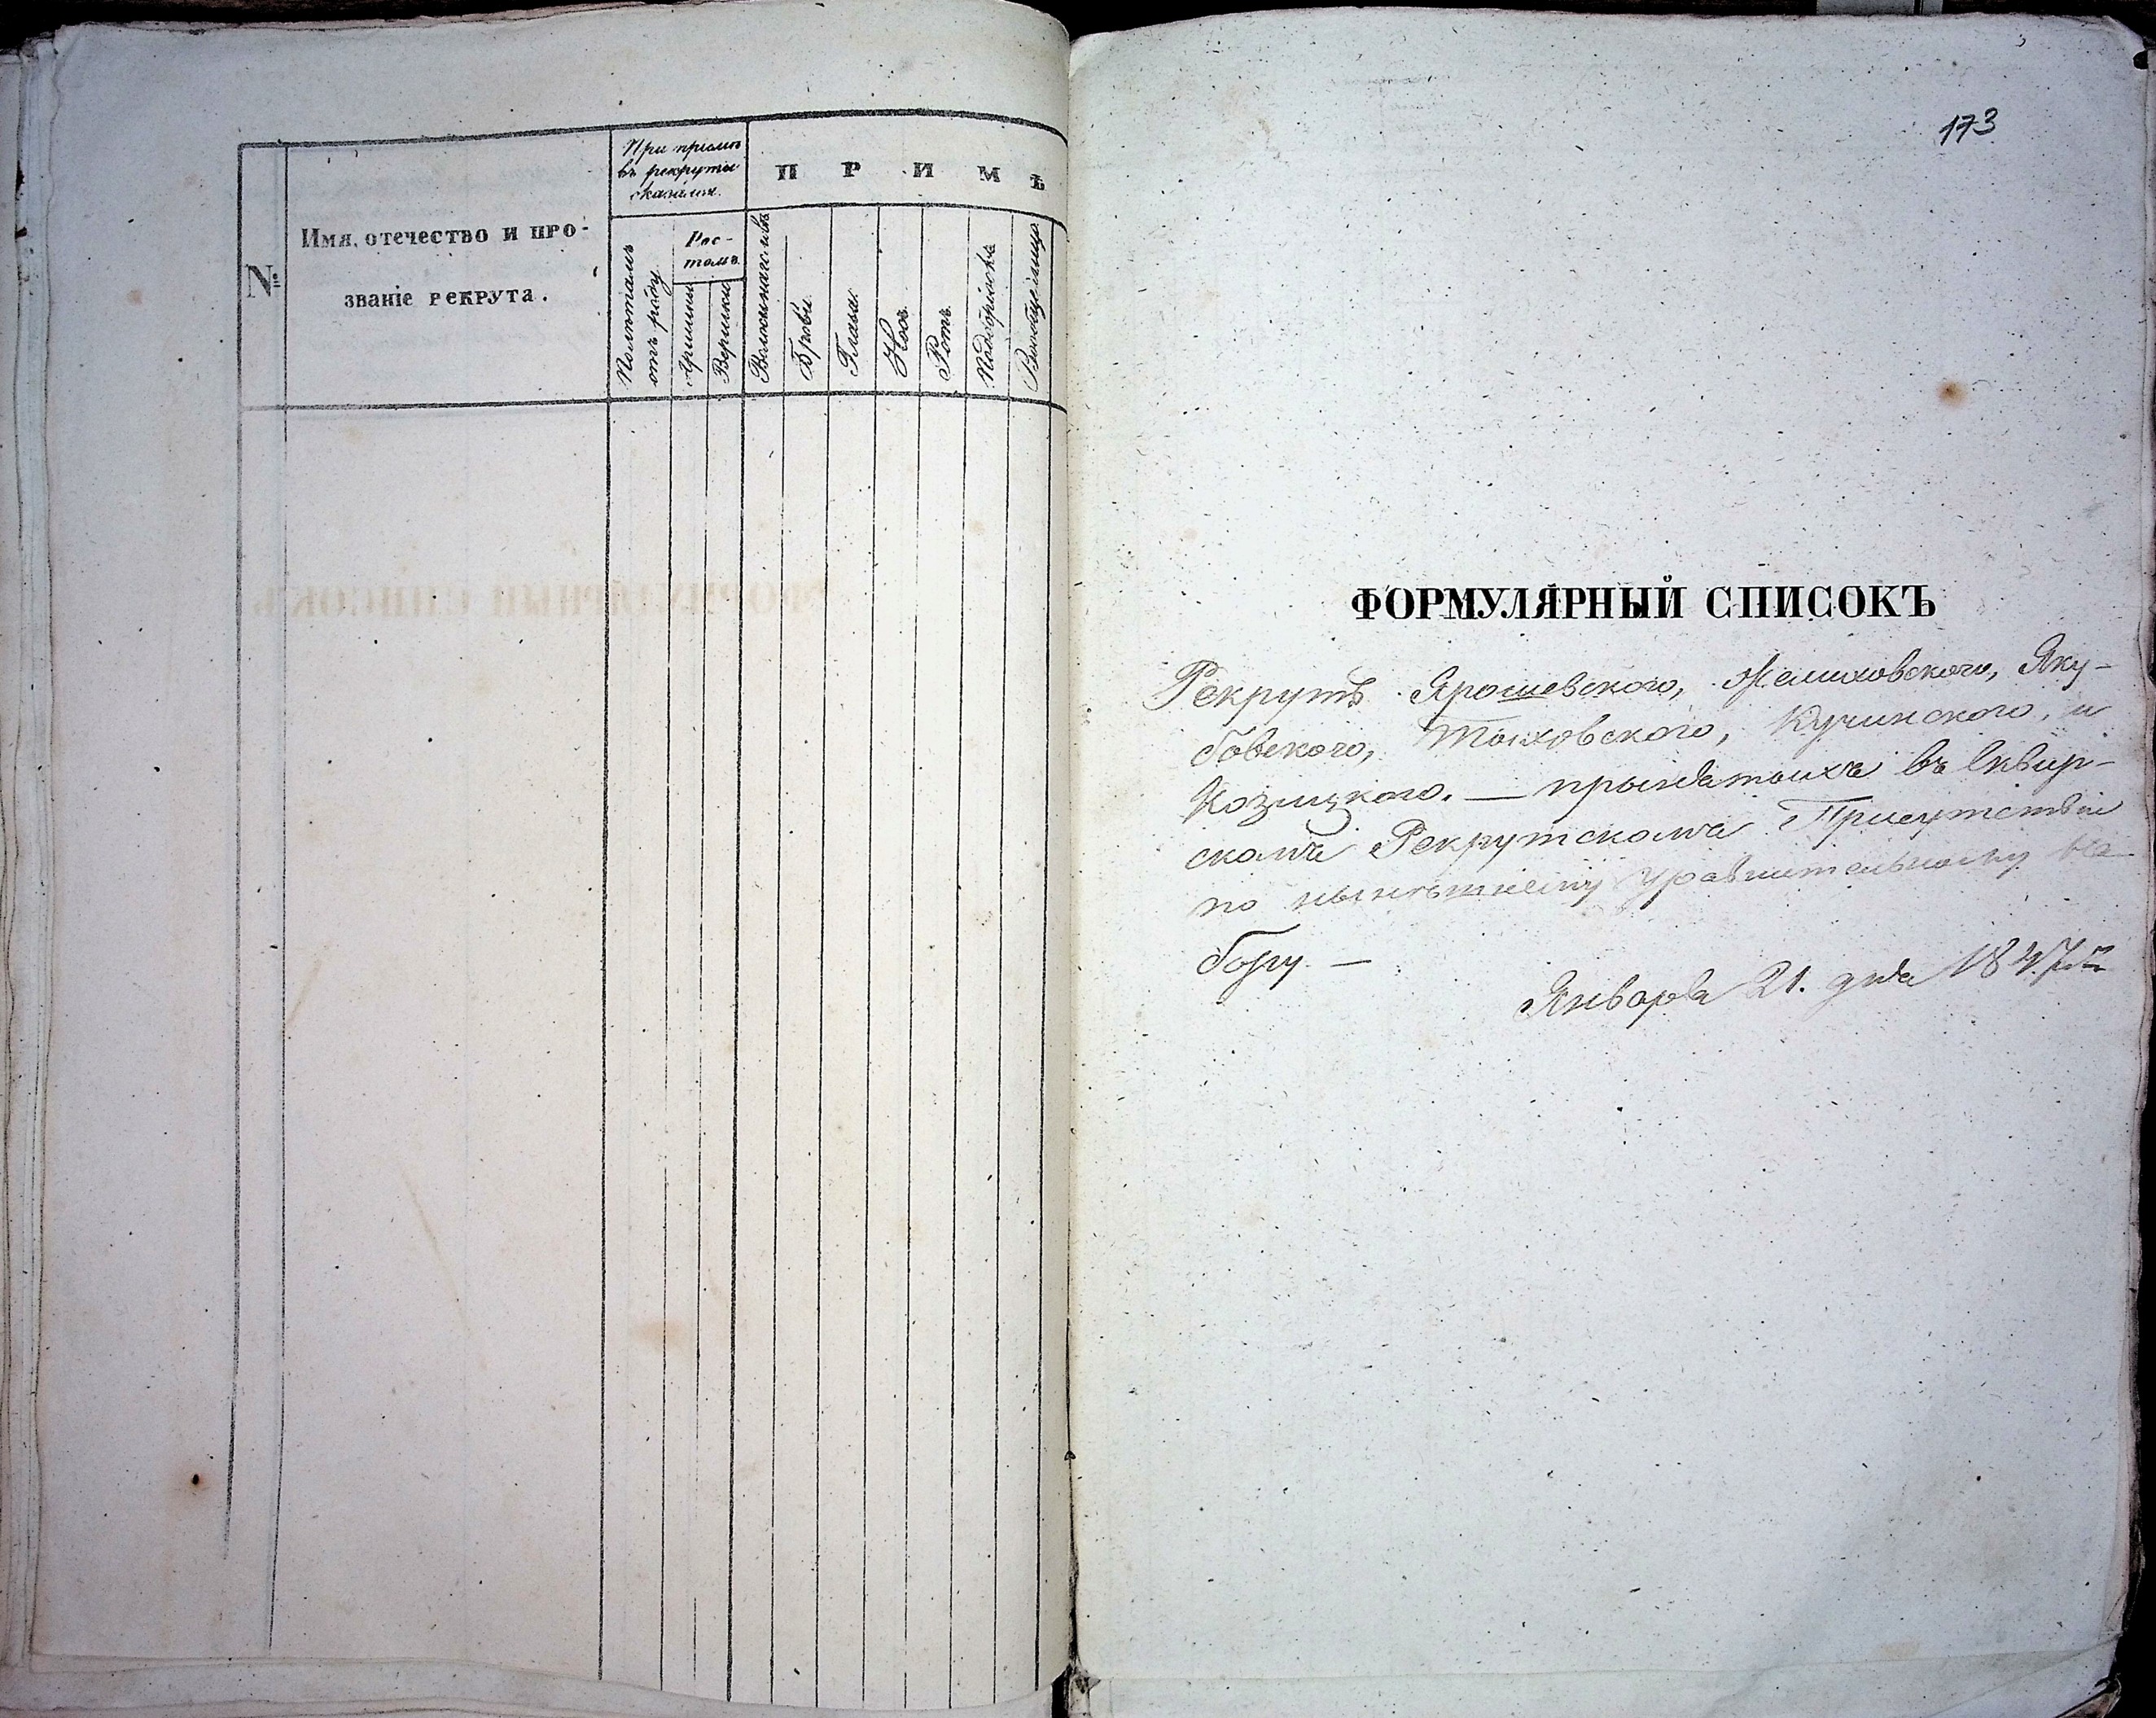 №
Имя, отечество и про-
званіе рекрута.
При пріемѣ
въ рекруты
оказался.
Полѣтамъ
отъ роду
Рос-
томъ.
Аршинъ
Вершки
П Р И М Ѣ
Волосы на головѣ
Брови
Глаза
Носъ
Ротъ
Подбородокъ
Вообще лицо
173
ФОРМУЛЯРНЫЙ СПИСОКЪ
Рекрутъ Ярошевского, Яку-
бовского, Кучинского, и
Козицкого. — принятыхъ въ Сквир-
скомъ Рекрутскомъ Присутствіи
по нынѣшнему уравнительному на-
бору —
Января 21. дня 1847 г.